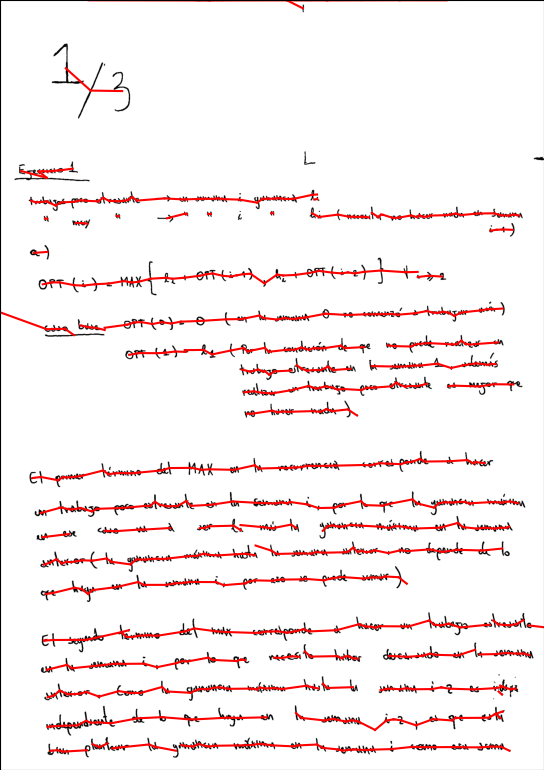 1/3
L
Ejercicio 1
trabajo poco estresante → en semana i ganancia li
" muy " → " " i " hi (necesita no hacer nada en semana
i-1)
a)
OPT(i) = MAX [ li + OPT(i-1), hi + OPT(i-2) ] i >= 2
caso base OPT(0) = 0 (en la semana 0 no comenzó a trabajar aún)
OPT(1) = l1 (Por la condición de que no puede realizar un
trabajo estresante en la semana 1, además
realizar un trabajo poco estresante es mejor que
no hacer nada)
El primer término del MAX en la recurrencia corresponde a hacer
un trabajo poco estresante en la semana i, por lo que la ganancia máxima
en ese caso va a ser li más la ganancia máxima en la semana
anterior (la ganancia máxima hasta la semana anterior no depende de lo
que haga en la semana i, por eso se puede sumar)
El segundo término del max corresponde a hacer un trabajo estresante
en la semana i, por lo que necesito haber descansado en la semana
anterior. Como la ganancia máxima hasta la semana i-2 es
independiente de lo que haga en la semana i-2, es que está
bien plantear la ganancia máxima en la semana i como esa suma